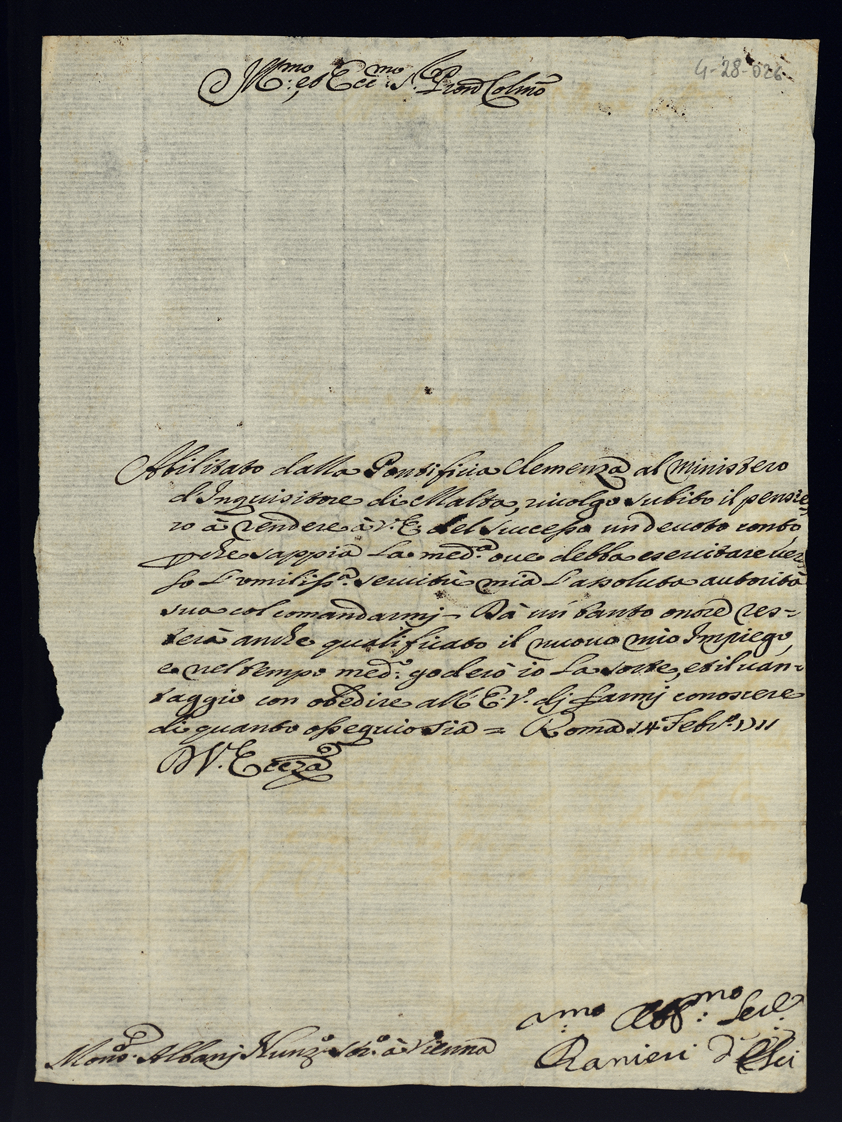 Ill.mo, et Ecc.mo S.r Pron Colmo
4-28-026
Abilitato dalla Pontificia Clemenza al Ministero
d'Inquisitore di Malta, rivolgo subito il pensie
ro à rendere à V.E. del successo un devoto conto
p che sappia la med.a ove debba esercitare ver
so l'umiliss.a servitù mia l'assoluta autorità
sua col comandarmj. Dà un tanto onore res-
terà anche qualificato il nuovo mio Impiego,
e nel tempo med.o goderò io la sorte, et il van-
taggio con obedire all'E.V. dj farmj conoscere
di quanto ossequio sia = Roma 14 Feb.o 1711
D V. Ecc.za
Mons.r Albanj Nunz.o à Vienna
Obb.mo Ser.
Ranieri d'Elci